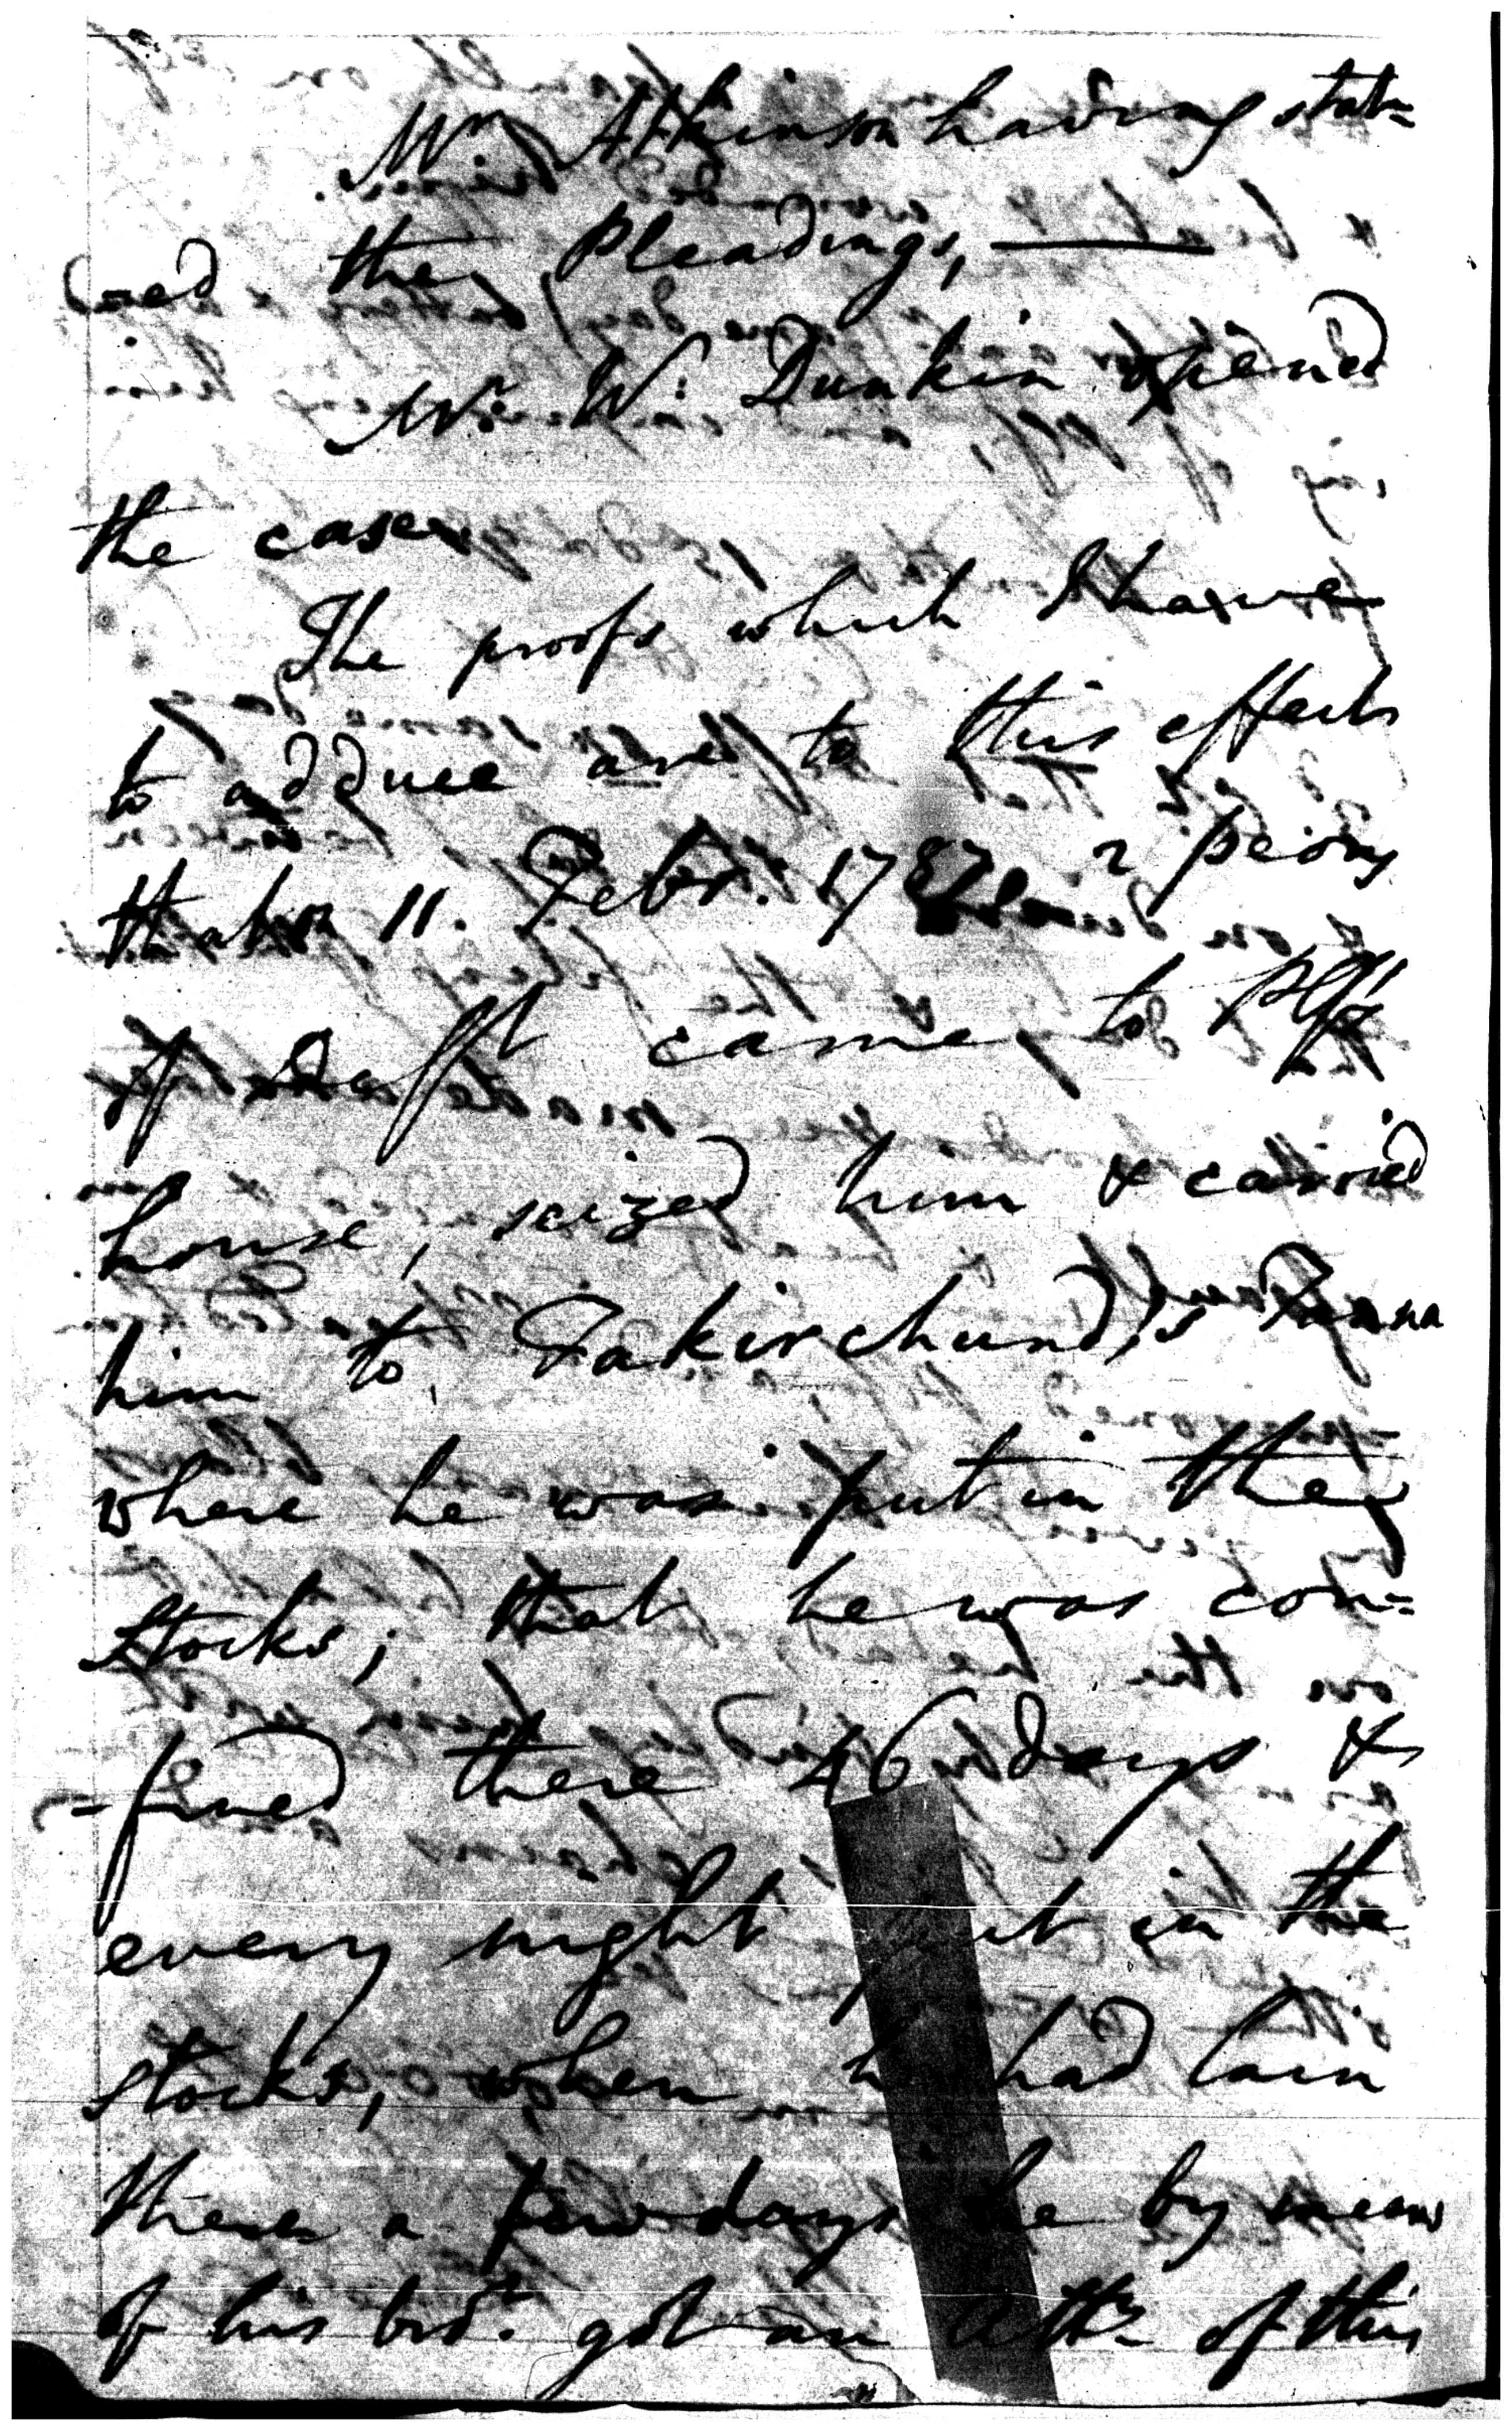 Mr. Atkinson having stat=
=ed the Pleadings, —
Mr. W: Dunkin opened
the case.
The proofs which I have
to adduce are to this effect
that on 11. Febr. 1787 2 peons
of Defft came to Plff's
house, seized him & carried
him to Fakirchund's Tanna
where he was put in the
stocks; that he was con=
-fined there 46 days &
every night put in the
stocks, when he had lain
there a few days he by means
of his bror. got an Atty of this